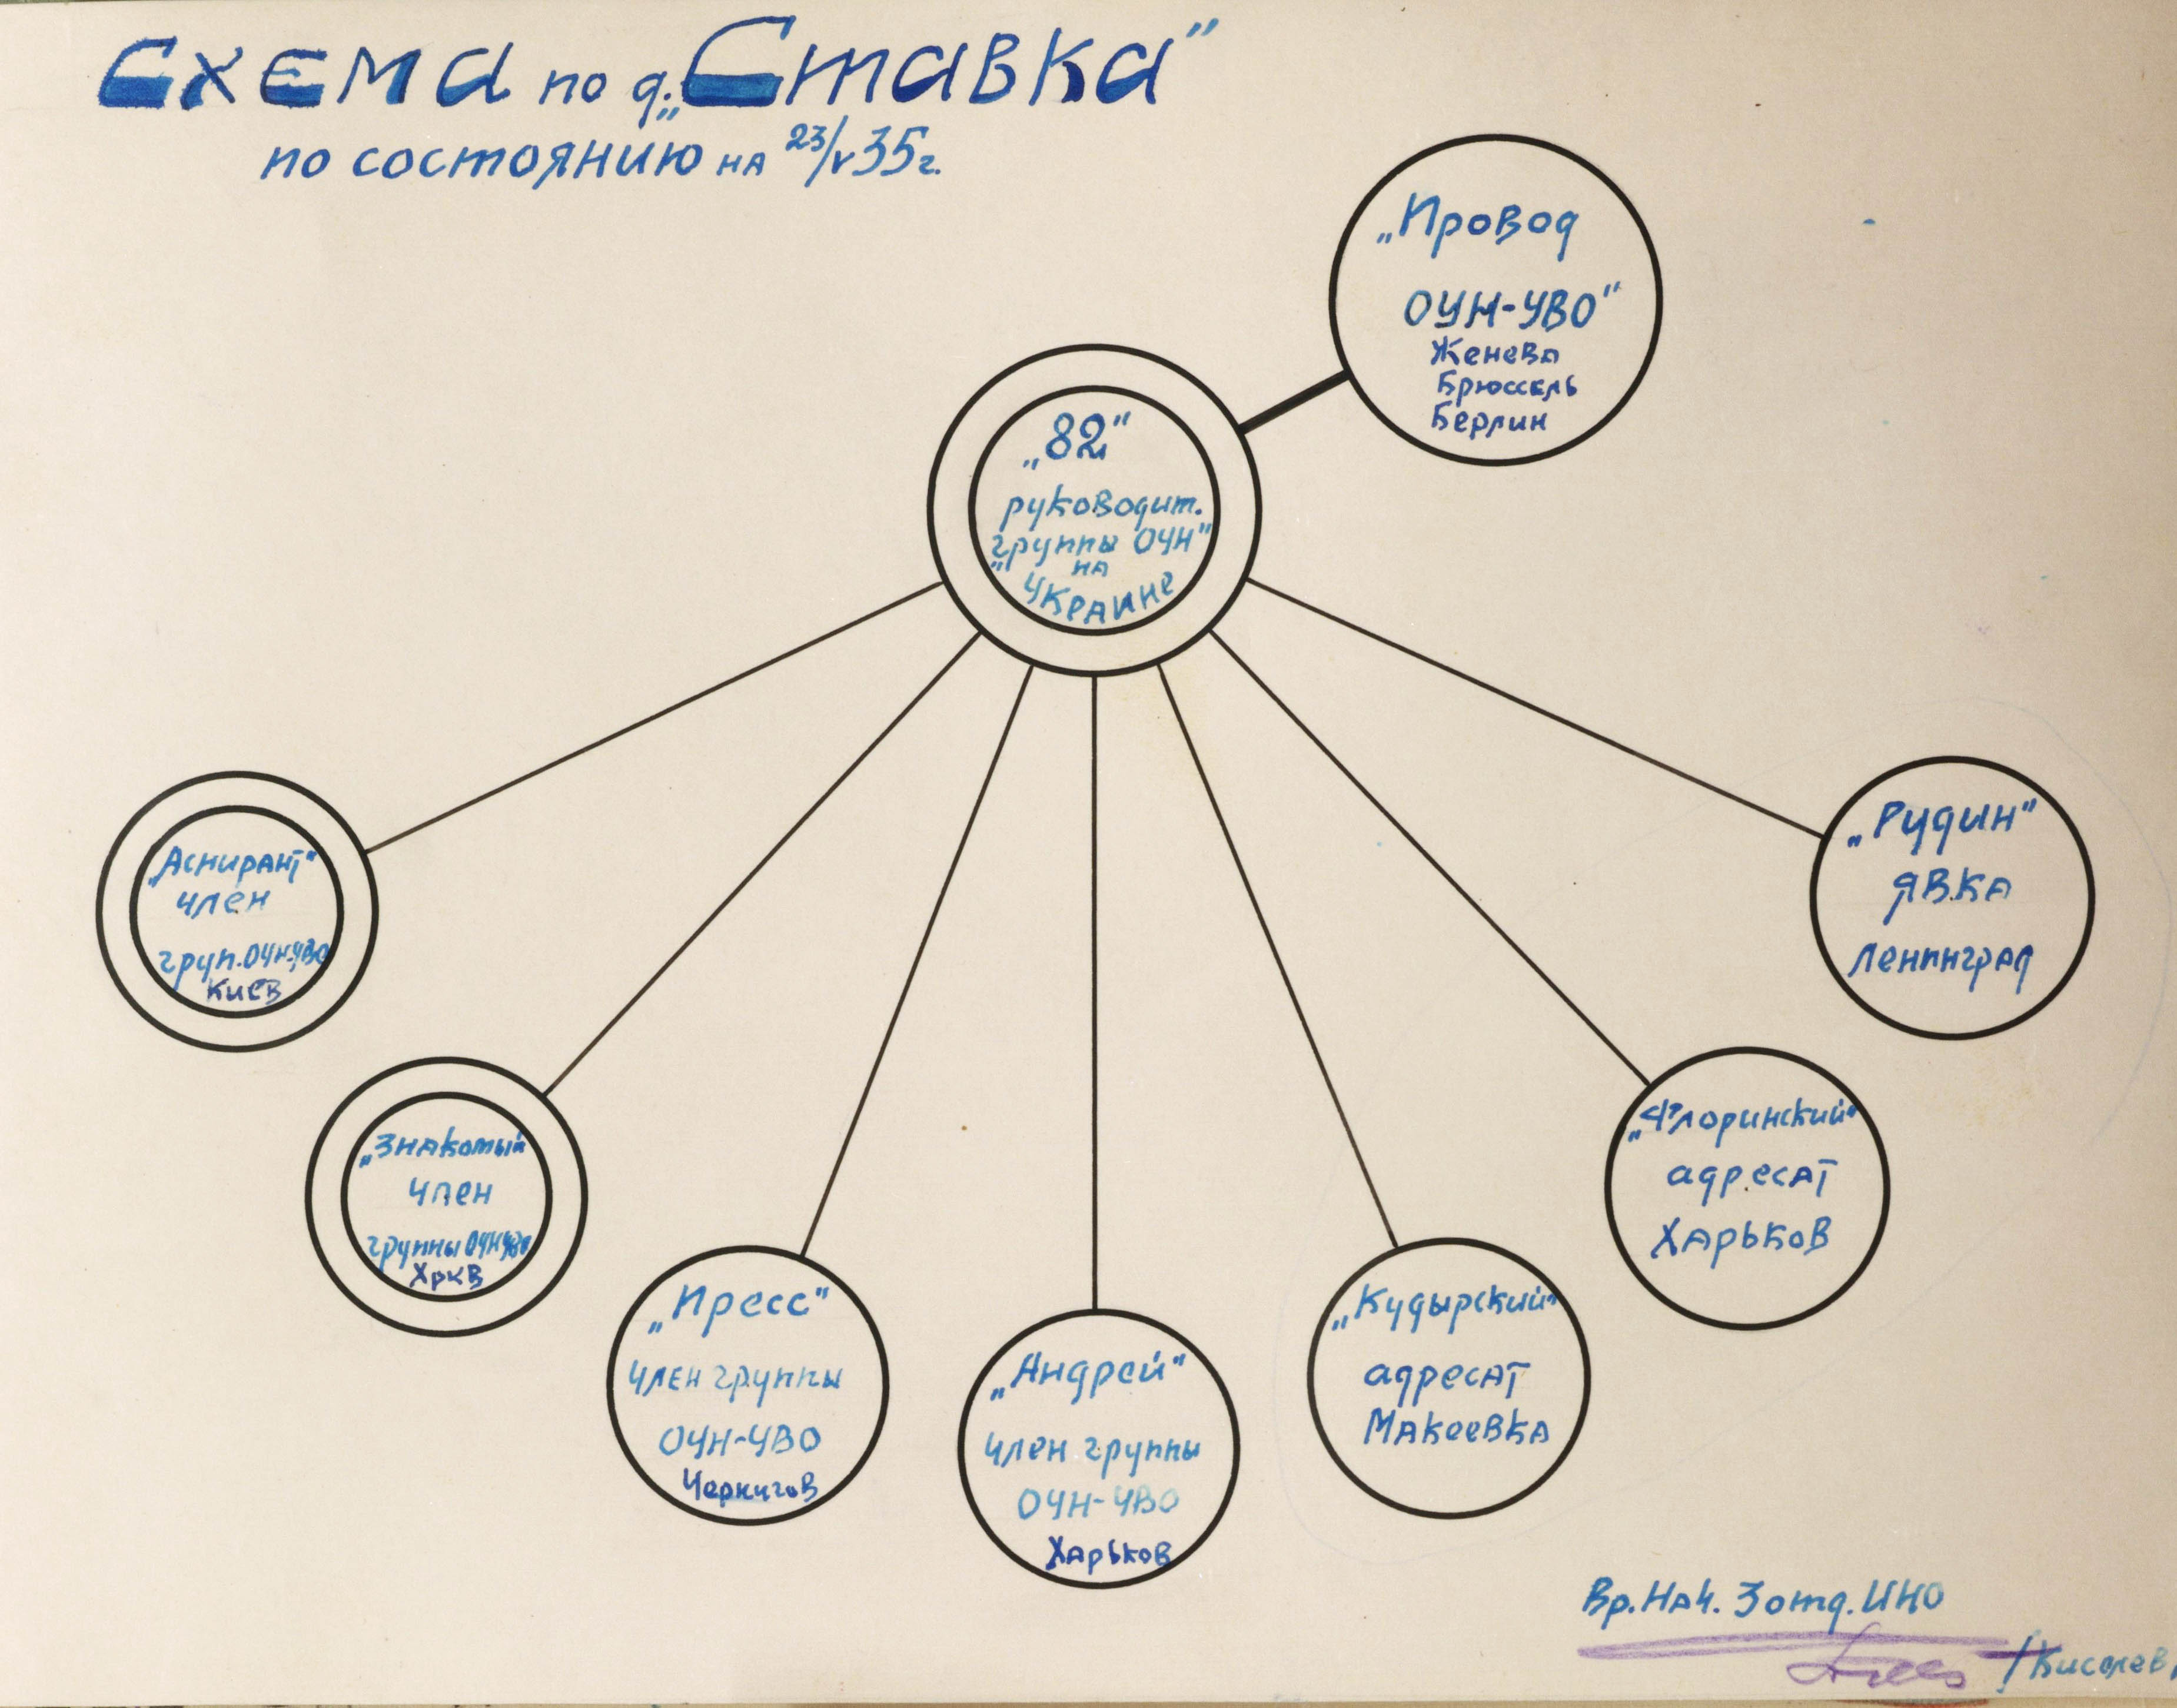 Схема по д. „Ставка"
по состоянию на 23/V 35г.
„Провод
ОУН-УВО"
Женева
Брюссель
Берлин
„82"
руководит.
„группы ОУН"
на
Украине
„Аспирант"
член
груп. ОУН-УВО
Киев
„Знакомый"
член
группы ОУН-УВО
Хркв
„Пресс"
член группы
ОУН-УВО
Чернигов
„Андрей"
член группы
ОУН-УВО
Харьков
„Кудырский"
адресат
Макеевка
„Флоринский"
адресат
Харьков
„Рудин"
явка
Ленинград
Вр. Нач. 3 отд. ИНО
/Киселев/